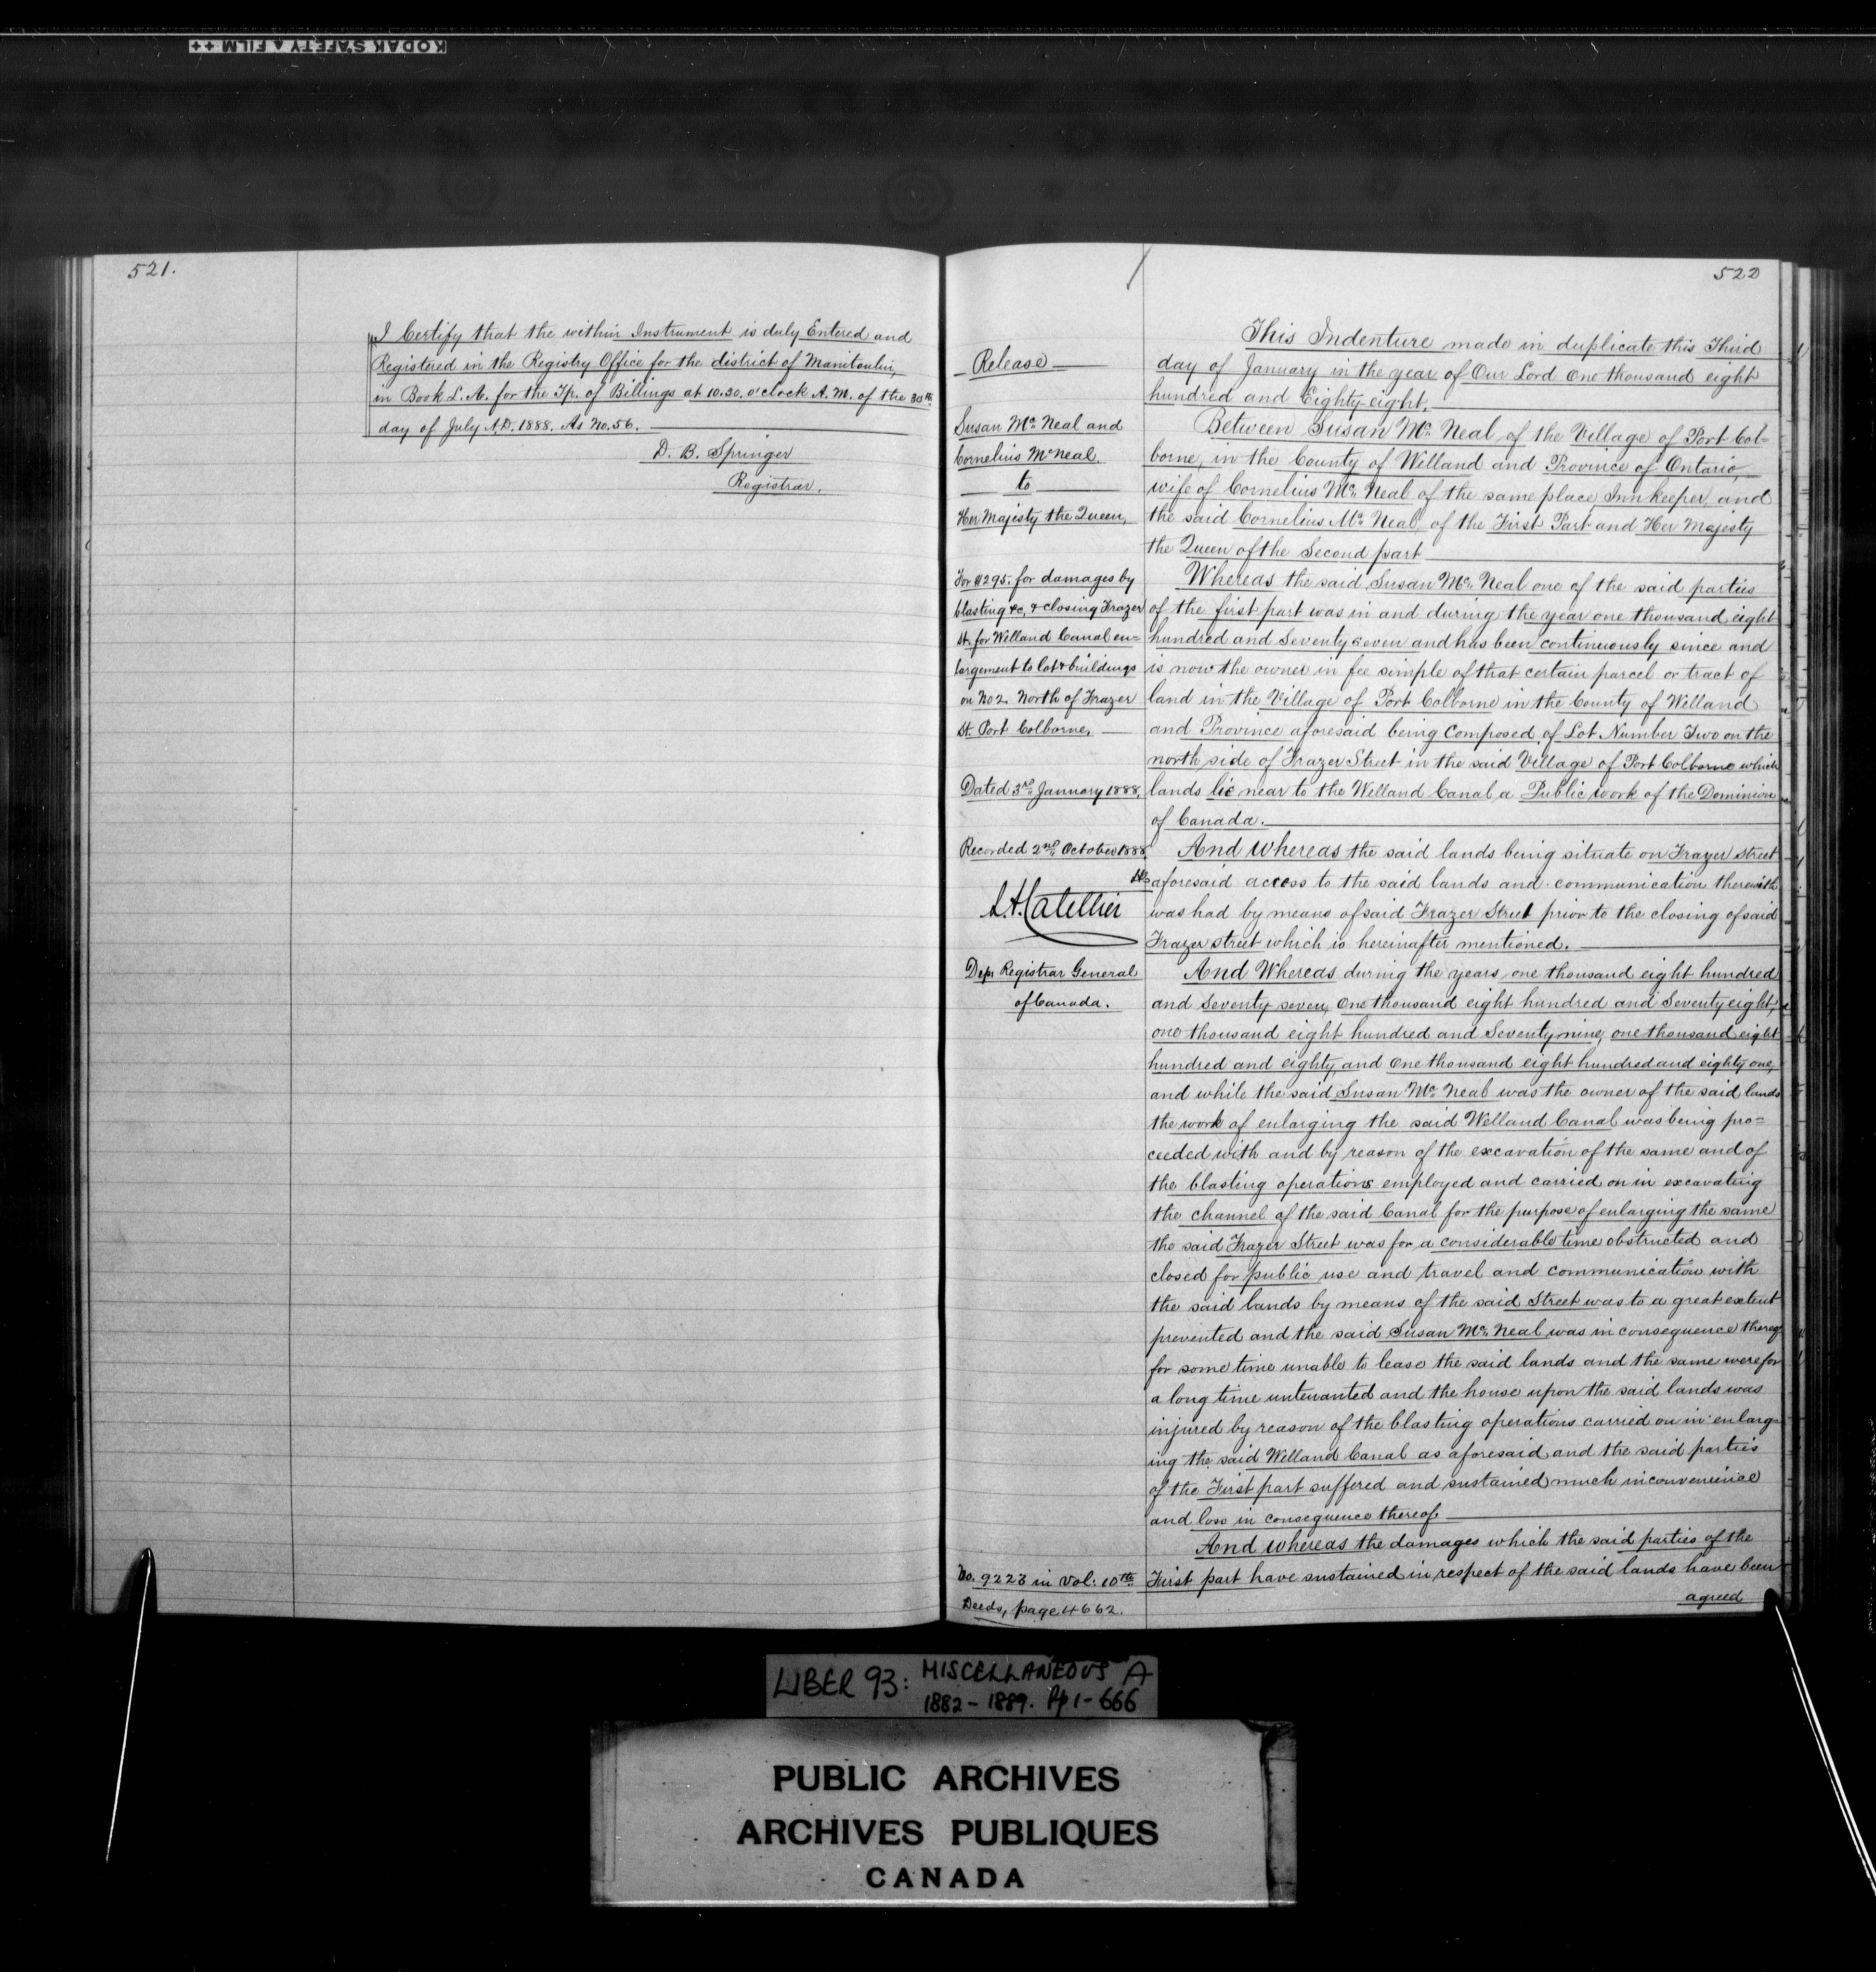 KODAK SAFETY FILM ++
521.
I Certify that the within Instrument is duly Entered and
Registered in the Registry Office for the district of Manitoulin,
in Book L. A. for the Tp. of Billings at 10.30. o'clock A. M. of the 30th
day of July A.D. 1888. As No. 56.
D. B. Springer
Registrar.
522
Release
Susan Mc Neal and
Cornelius McNeal.
to
Her Majesty the Queen,
For $295. for damages by
blasting &c. & closing Frazer
St. for Welland Canal en=
largement to lot & buildings
on No 2. North of Frazer
St. Port Colborne.
Dated 3rd January 1888.
Recorded 2nd October 1888.
L. A. Catellier
Depy Registrar General
of Canada.
No. 9223 in Vol: 10th
Deeds, page 4662.
This Indenture made in duplicate this Third
day of January in the year of Our Lord One thousand eight
hundred and Eighty-eight.
Between Susan Mc Neal of the Village of Port Col=
borne, in the County of Welland and Province of Ontario,
wife of Cornelius Mc Neal of the same place, Innkeeper, and
the said Cornelius Mc Neal of the First Part and Her Majesty
the Queen of the Second part
Whereas the said Susan Mc Neal one of the said parties
of the first part was in and during the year one thousand eight
hundred and Seventy seven and has been continuously since and
is now the owner in fee simple of that certain parcel or tract of
land in the Village of Port Colborne in the County of Welland
and Province aforesaid being Composed of Lot Number Two on the
north side of Frazer Street in the said Village of Port Colborne which
lands lie near to the Welland Canal a Public work of the Dominion
of Canada.
And whereas the said lands being situate on Frazer street
aforesaid access to the said lands and communication therewith
was had by means of said Frazer Street prior to the closing of said
Frazer street which is hereinafter mentioned.
And Whereas during the years one thousand eight hundred
and Seventy seven, One thousand eight hundred and Seventy eight,
one thousand eight hundred and Seventy nine, one thousand eight
hundred and eighty, and One thousand eight hundred and eighty one,
and while the said Susan Mc Neal was the owner of the said lands
the work of enlarging the said Welland Canal was being pro=
ceeded with and by reason of the excavation of the same and of
the blasting operations employed and carried on in excavating
the channel of the said Canal for the purpose of enlarging the same
the said Frazer Street was for a considerable time obstructed and
closed for public use and travel and communication with
the said lands by means of the said Street was to a great extent
prevented and the said Susan Mc Neal was in consequence thereof
for some time unable to lease the said lands and the same were for
a long time untenanted and the house upon the said lands was
injured by reason of the blasting operations carried on in enlarg=
ing the said Welland Canal as aforesaid and the said parties
of the First part suffered and sustained much inconvenience
and loss in consequence thereof
And whereas the damages which the said parties of the
First part have sustained in respect of the said lands have been
agreed
LIBER 93: MISCELLANEOUS A
1882 - 1889. Pp 1-666
PUBLIC ARCHIVES
ARCHIVES PUBLIQUES
CANADA